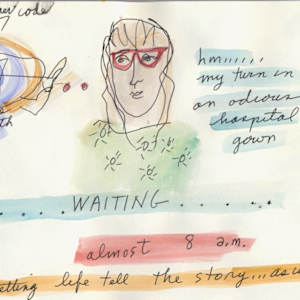 code
hm......
my turn in
an odious
hospital
gown
th
.... WAITING ......
almost 8 a.m.
etting life tell the story...as u